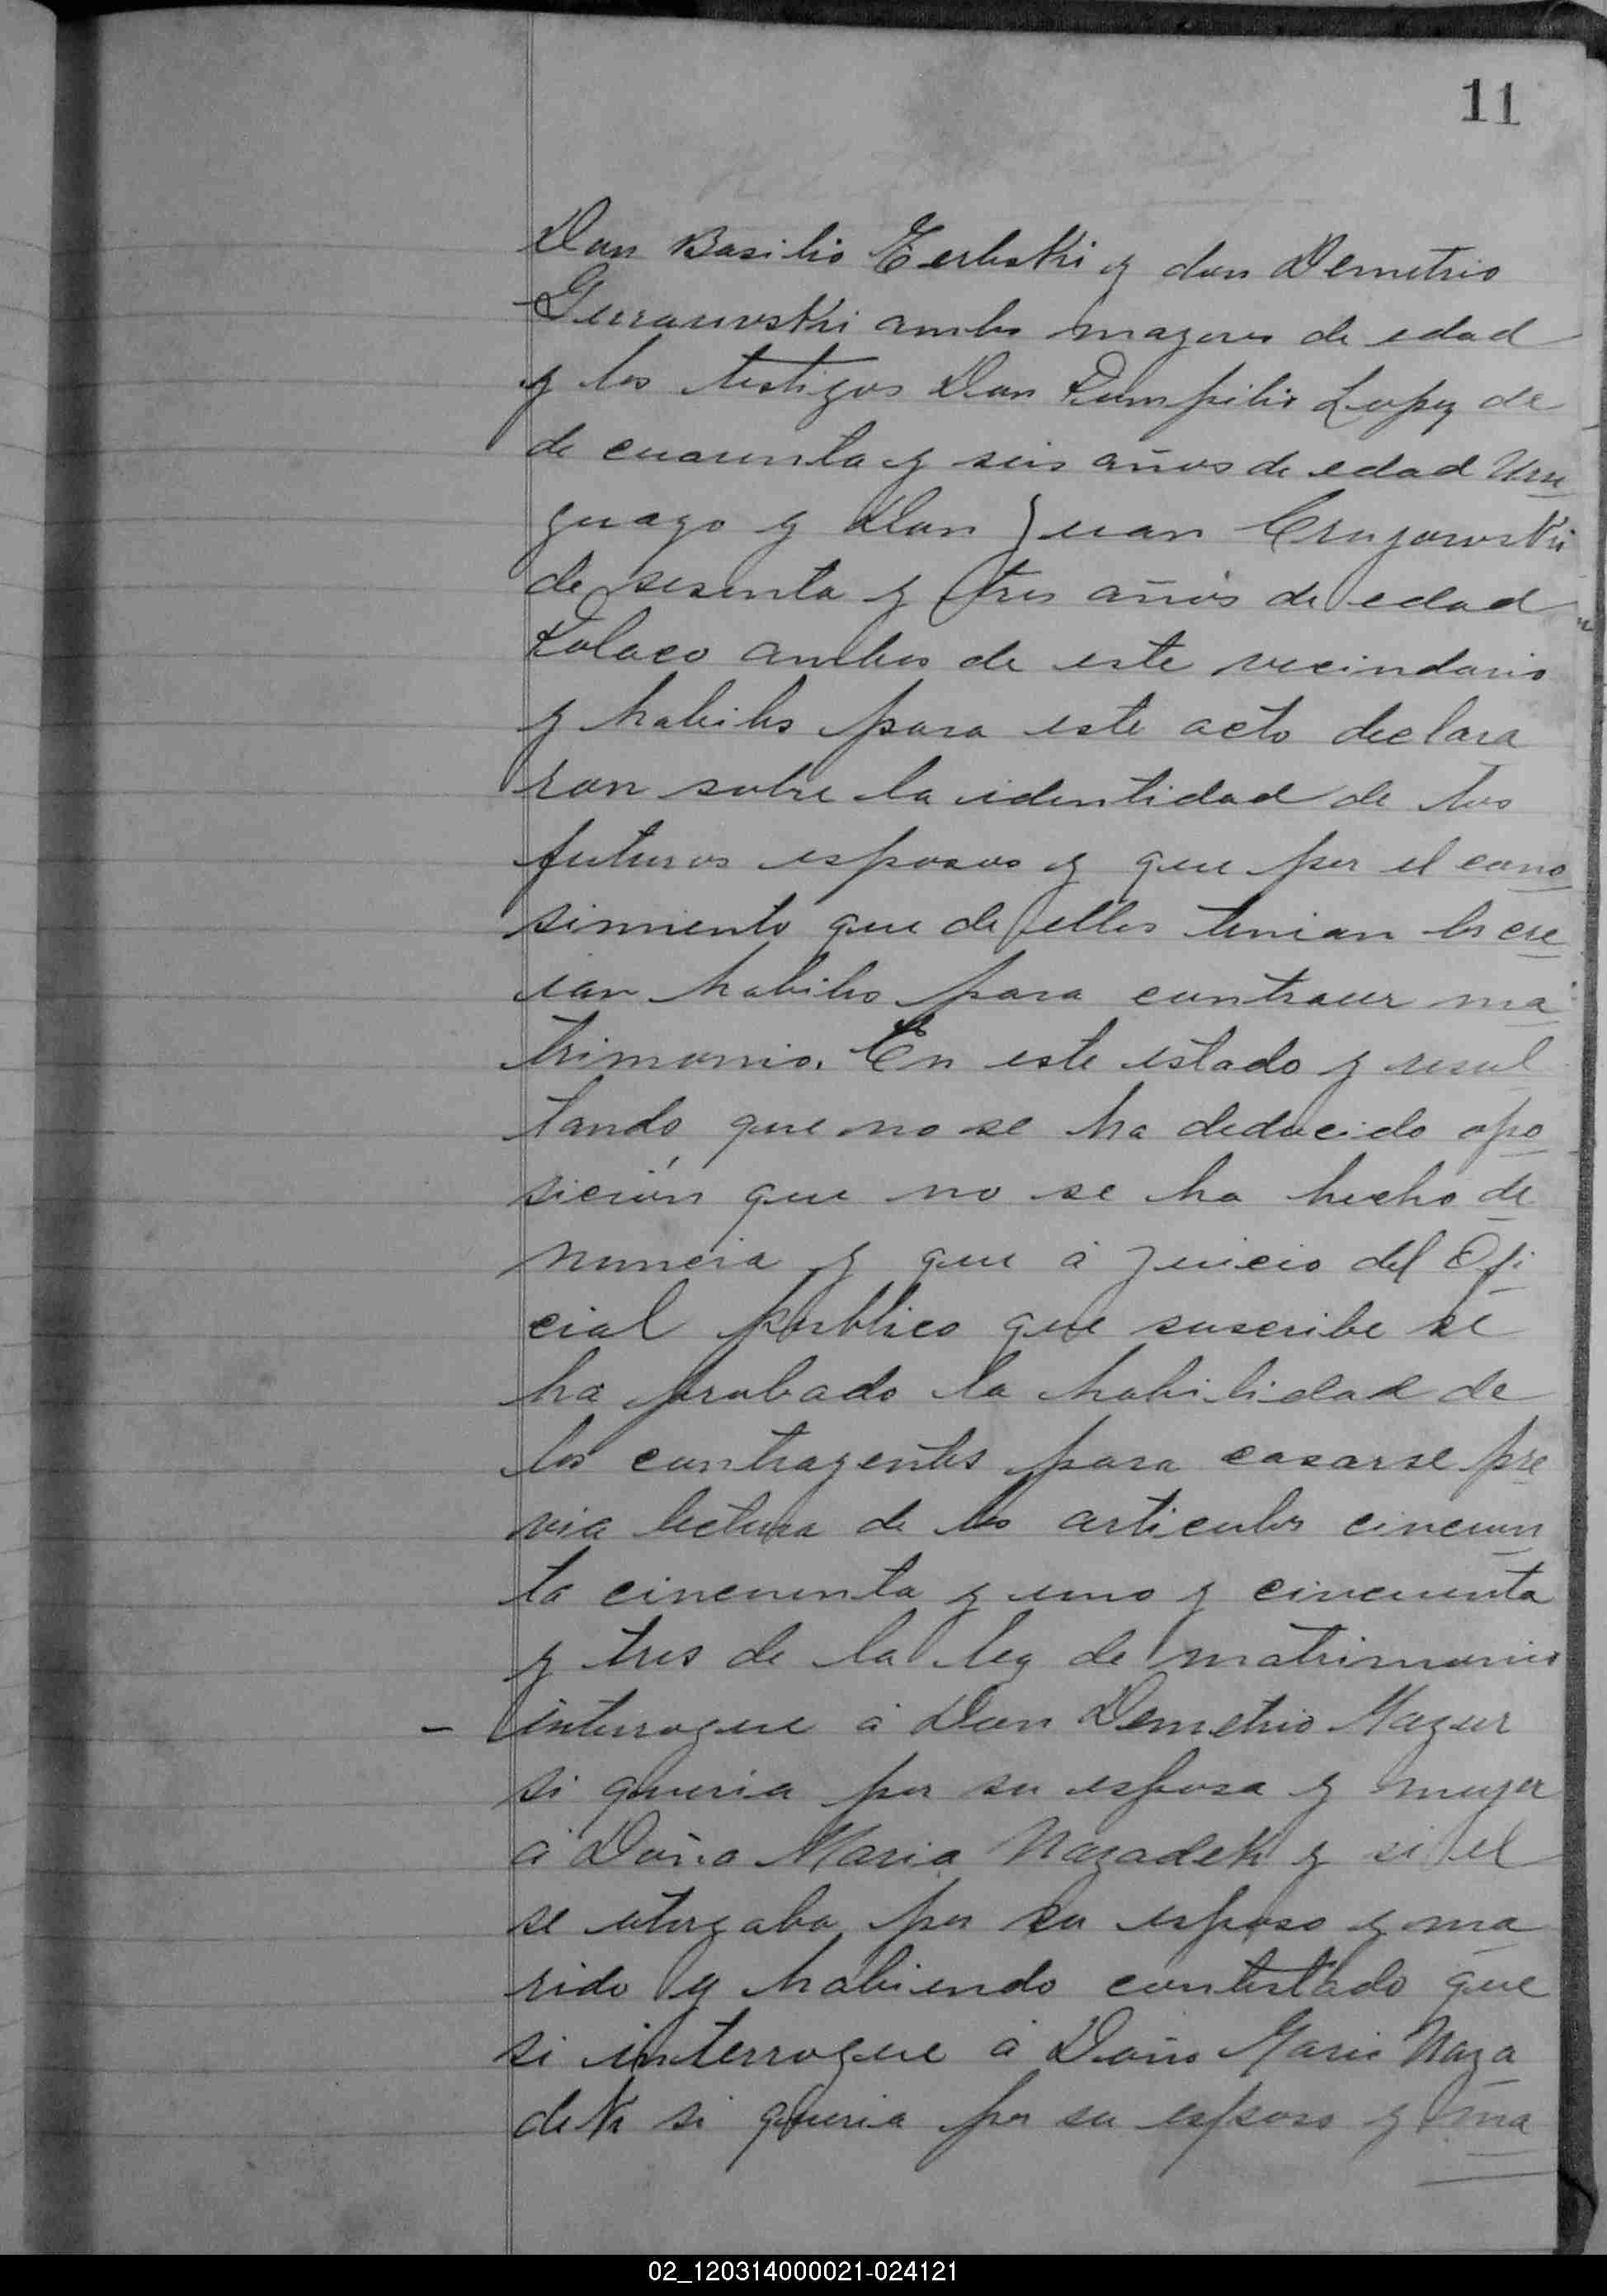 11
Don Basilio Zerbski y don Demetrio
Guranovski ambos mayores de edad
y los testigos Don Pompilio Lopez de
de cuarenta y seis años de edad Uru
guayo y Don Juan Cruzowski
de sesenta y tres años de edad
Polaco ambos de este vecindario
y habiles para este acto declara
ron sobre la identidad de los
futuros esposos y que por el cono
simiento que de ellos tenian los cre
ian habiles para contraer ma
trimonio. En este estado y resul
tando que no se ha deducido opo
sición que no se ha hecho de
nuncia y que á juicio del Ofi
cial publico que suscribe se
ha probado la habilidad de
los contrayentes para casarse pre
via lectura de los articulos cincuen
ta cincuenta y uno y cincuenta
y tres de la ley de matrimonio
– interrogue á Don Demetrio Mazur
si queria por su esposa y mujer
á Doña Maria Nazadek y si el
se otorgaba por su esposo y ma
rido y habiendo contestado que
si interrogue á Doña Maria Naza
dek si queria por su esposo y ma
02_120314000021-024121